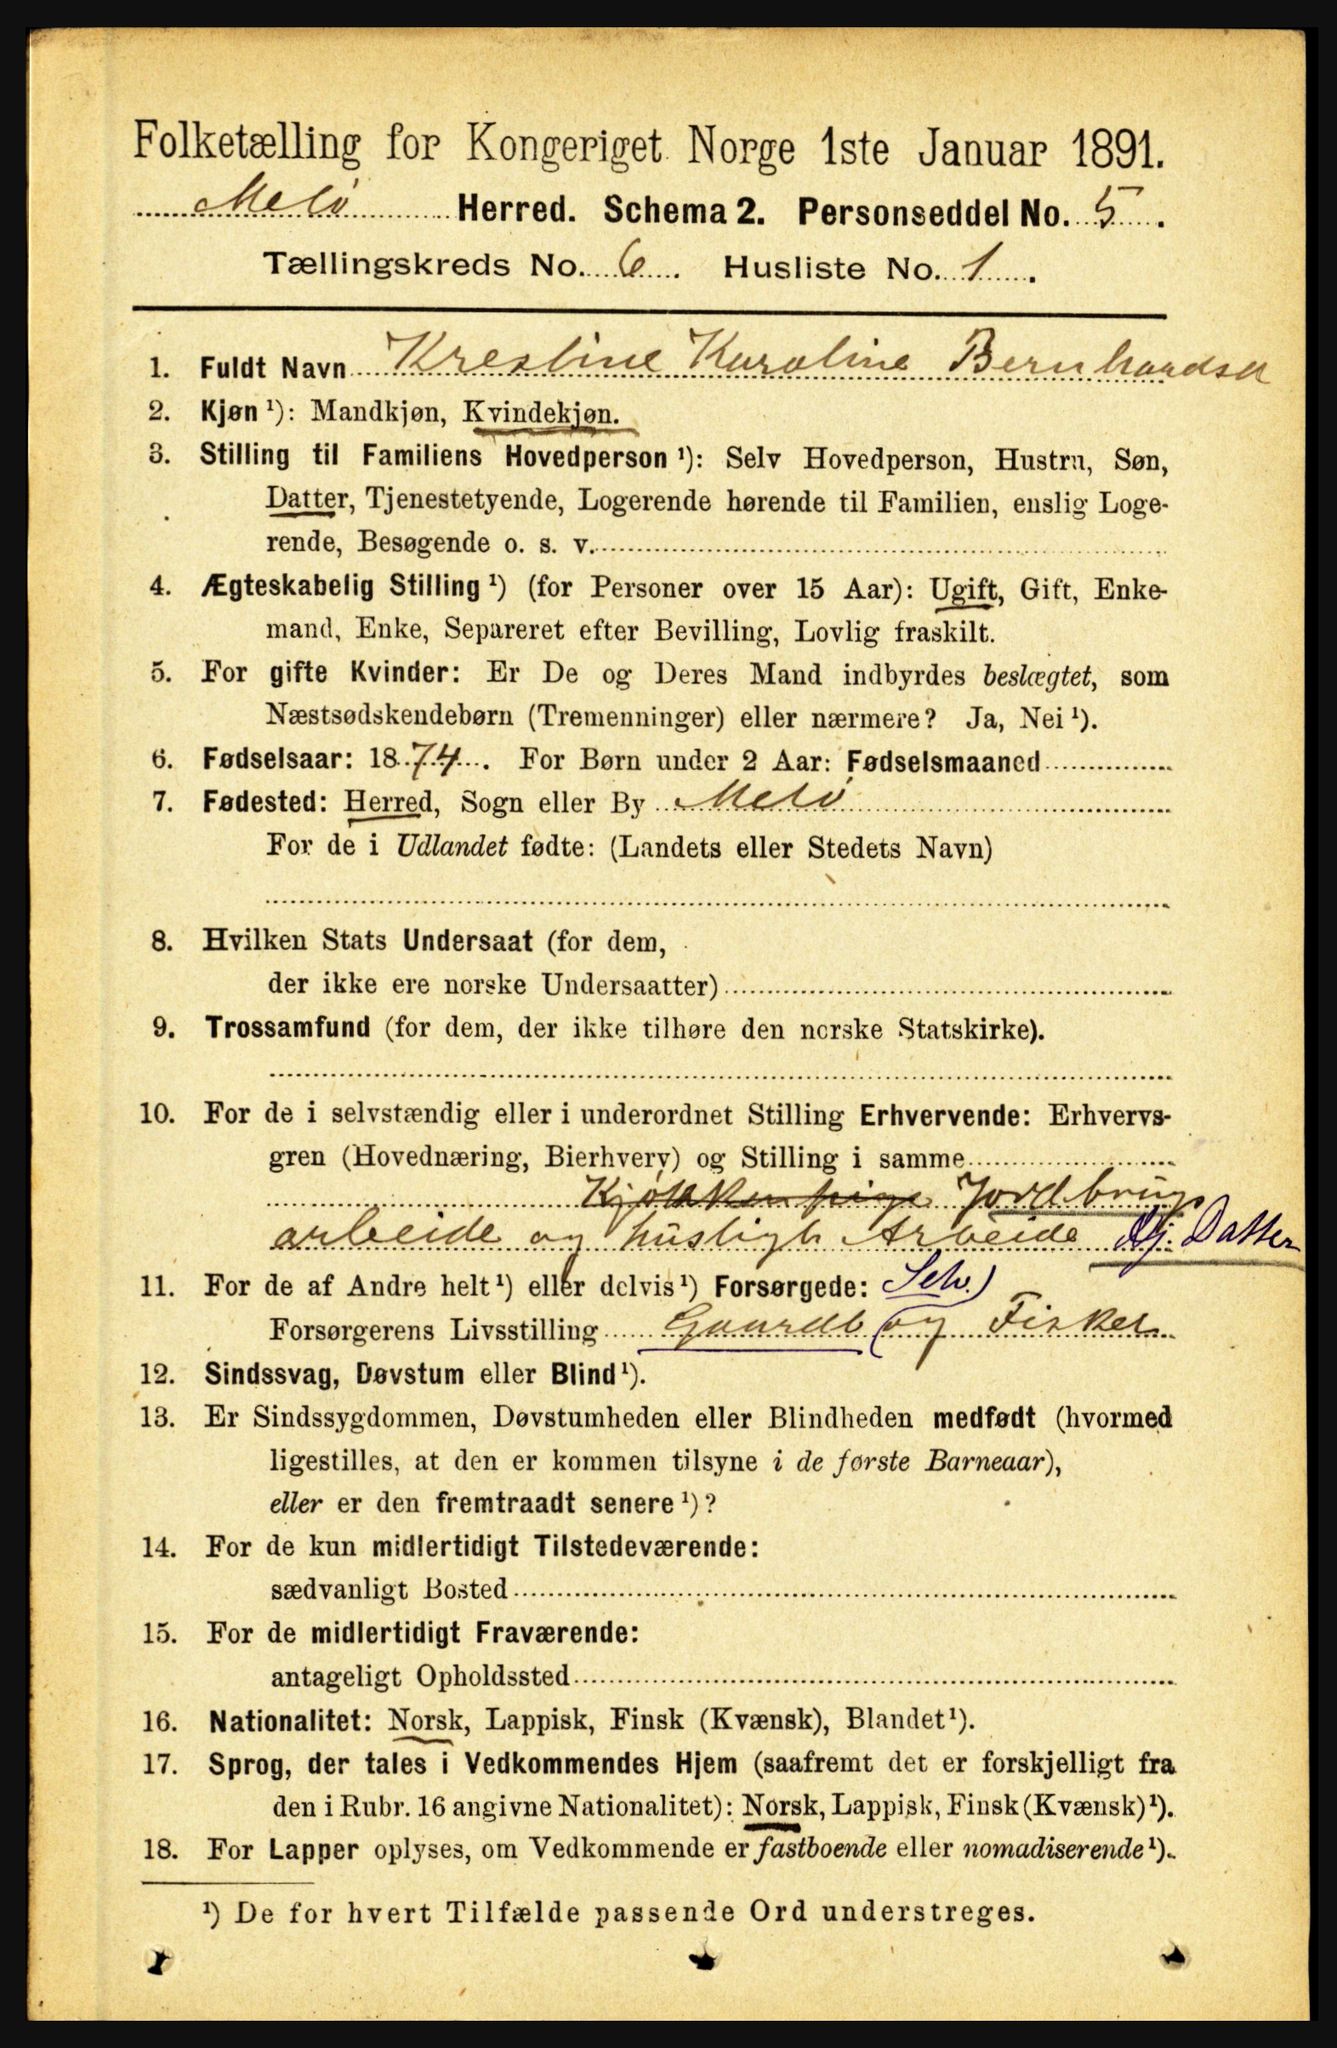 Folketælling for Kongeriget Norge 1ste Januar 1891.
Melø Herred. Schema 2. Personseddel No. 5.
Tællingskreds No. 6. Husliste No. 1.
1. Fuldt Navn Krestine Karoline Bernhardsd
2. Kjøn ¹): Mandkjøn, Kvindekjøn.
3. Stilling til Familiens Hovedperson ¹): Selv Hovedperson, Hustru, Søn,
Datter, Tjenestetyende, Logerende hørende til Familien, enslig Loge-
rende, Besøgende o. s. v.
4. Ægteskabelig Stilling ¹) (for Personer over 15 Aar): Ugift, Gift, Enke-
mand, Enke, Separeret efter Bevilling, Lovlig fraskilt.
5. For gifte Kvinder: Er De og Deres Mand indbyrdes beslægtet, som
Næstsødskendebørn (Tremenninger) eller nærmere? Ja, Nei ¹).
6. Fødselsaar: 1874. For Børn under 2 Aar: Fødselsmaaned
7. Fødested: Herred, Sogn eller By Melø
For de i Udlandet fødte: (Landets eller Stedets Navn)
8. Hvilken Stats Undersaat (for dem,
der ikke ere norske Undersaatter)
9. Trossamfund (for dem, der ikke tilhøre den norske Statskirke).
10. For de i selvstændig eller i underordnet Stilling Erhvervende: Erhvervs-
gren (Hovednæring, Bierhverv) og Stilling i samme
Kjøkkenpige Jordbrugs
arbeide og husligt Arbeide Dj. Datter
11. For de af Andre helt ¹) eller delvis ¹) Forsørgede: Selv.)
Forsørgerens Livsstilling Gaardb (og Fisker
12. Sindssvag, Døvstum eller Blind ¹).
13. Er Sindssygdommen, Døvstumheden eller Blindheden medfødt (hvormed
ligestilles, at den er kommen tilsyne i de første Barneaar),
eller er den fremtraadt senere ¹)?
14. For de kun midlertidigt Tilstedeværende:
sædvanligt Bosted
15. For de midlertidigt Fraværende:
antageligt Opholdssted
16. Nationalitet: Norsk, Lappisk, Finsk (Kvænsk), Blandet ¹).
17. Sprog, der tales i Vedkommendes Hjem (saafremt det er forskjelligt fra
den i Rubr. 16 angivne Nationalitet): Norsk, Lappisk, Finsk (Kvænsk) ¹).
18. For Lapper oplyses, om Vedkommende er fastboende eller nomadiserende ¹).
¹) De for hvert Tilfælde passende Ord understreges.